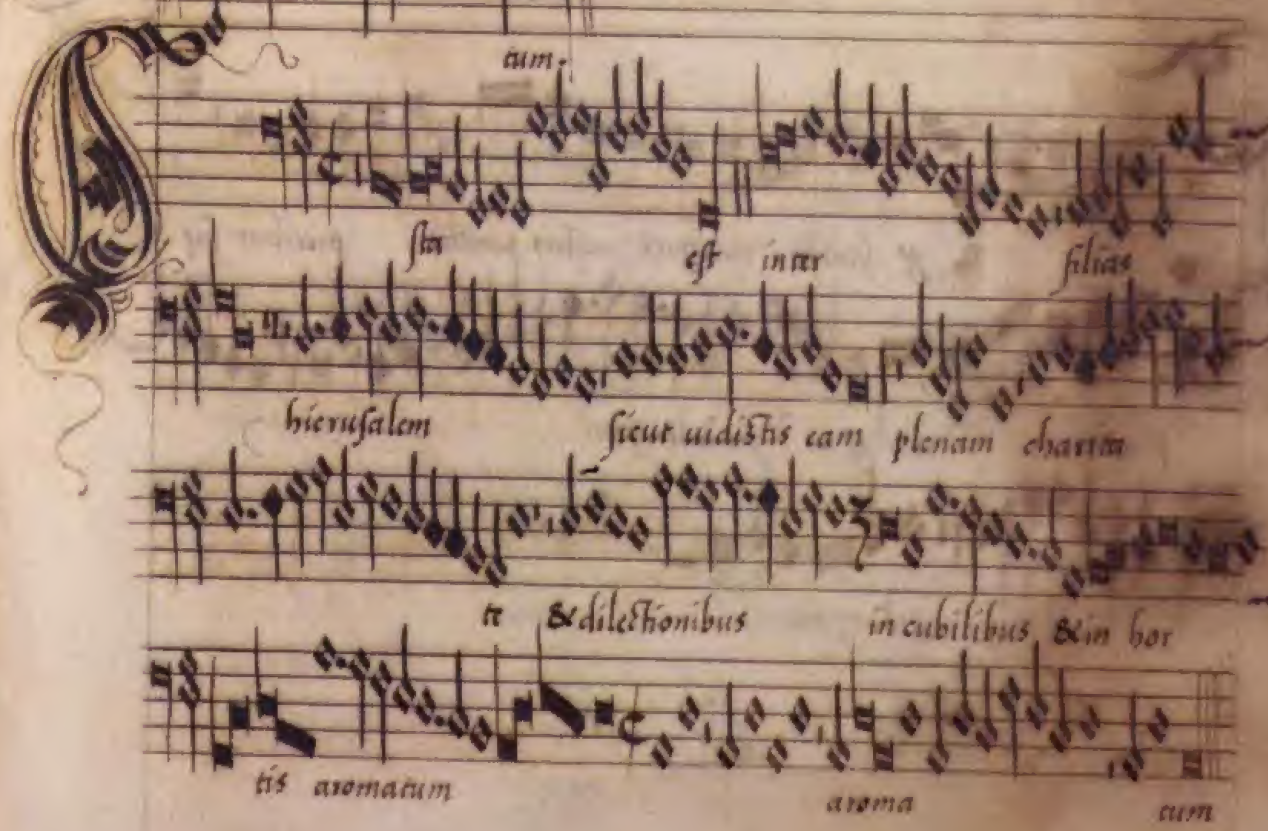 tum.
Ista est inter filias
hierusalem sicut uidistis eam plenam charita
te & dilectionibus in cubilibus & in hor
tis aromatum aroma tum